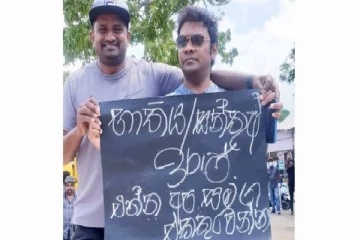 භාතිය/සන්තුෂ්
ඉරාජ්
එන්න අප සමග
එකතුවෙන්න